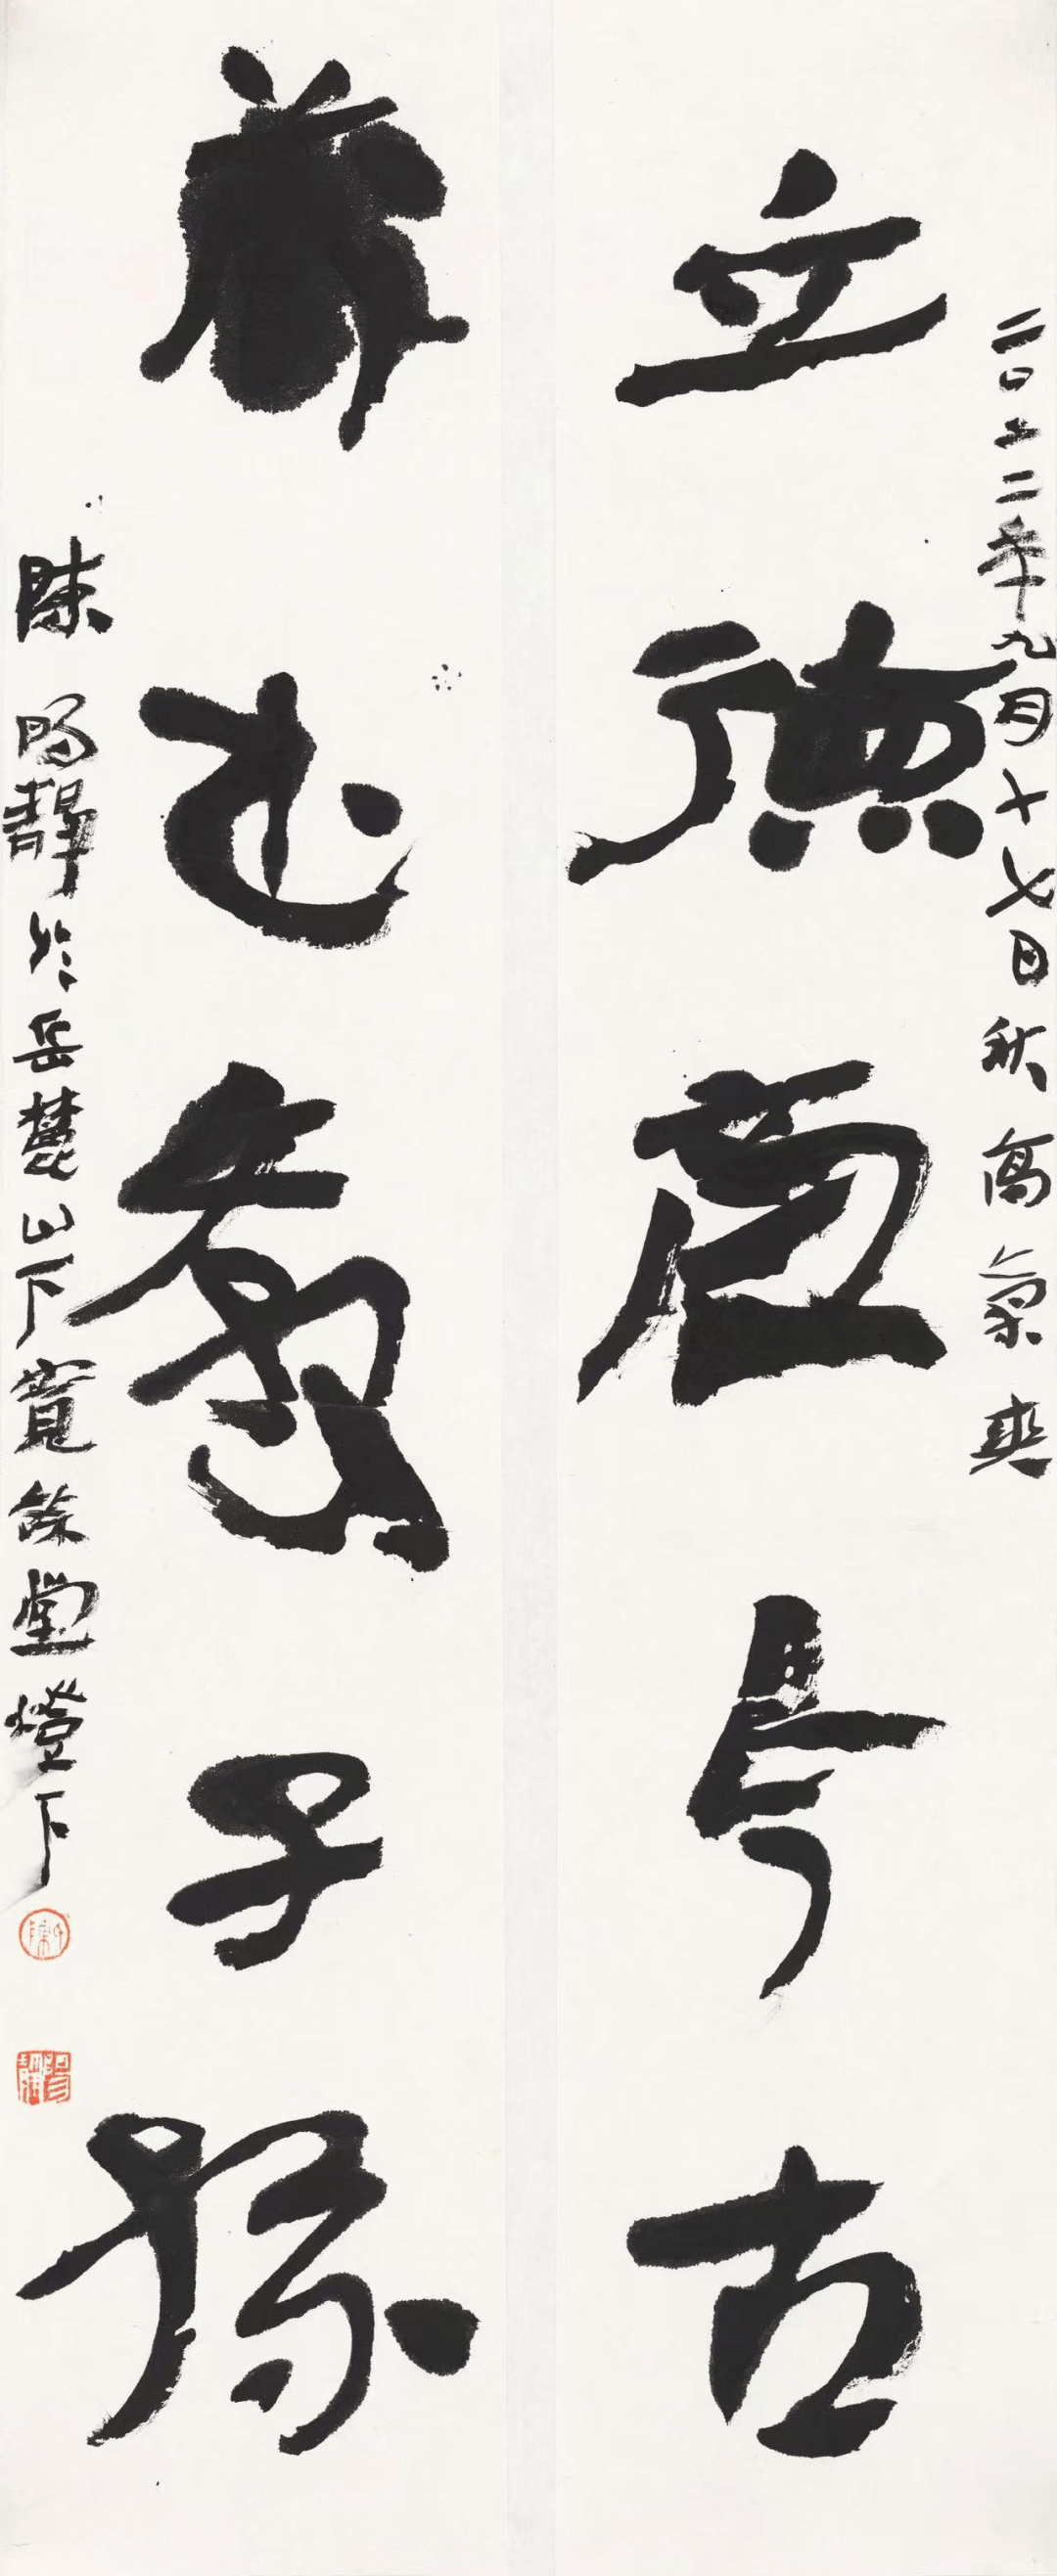 二〇二二年九月十七日秋高氣爽
立德齊今古
藏書教子孫
陳陽靜於岳麓山下寬餘堂燈下